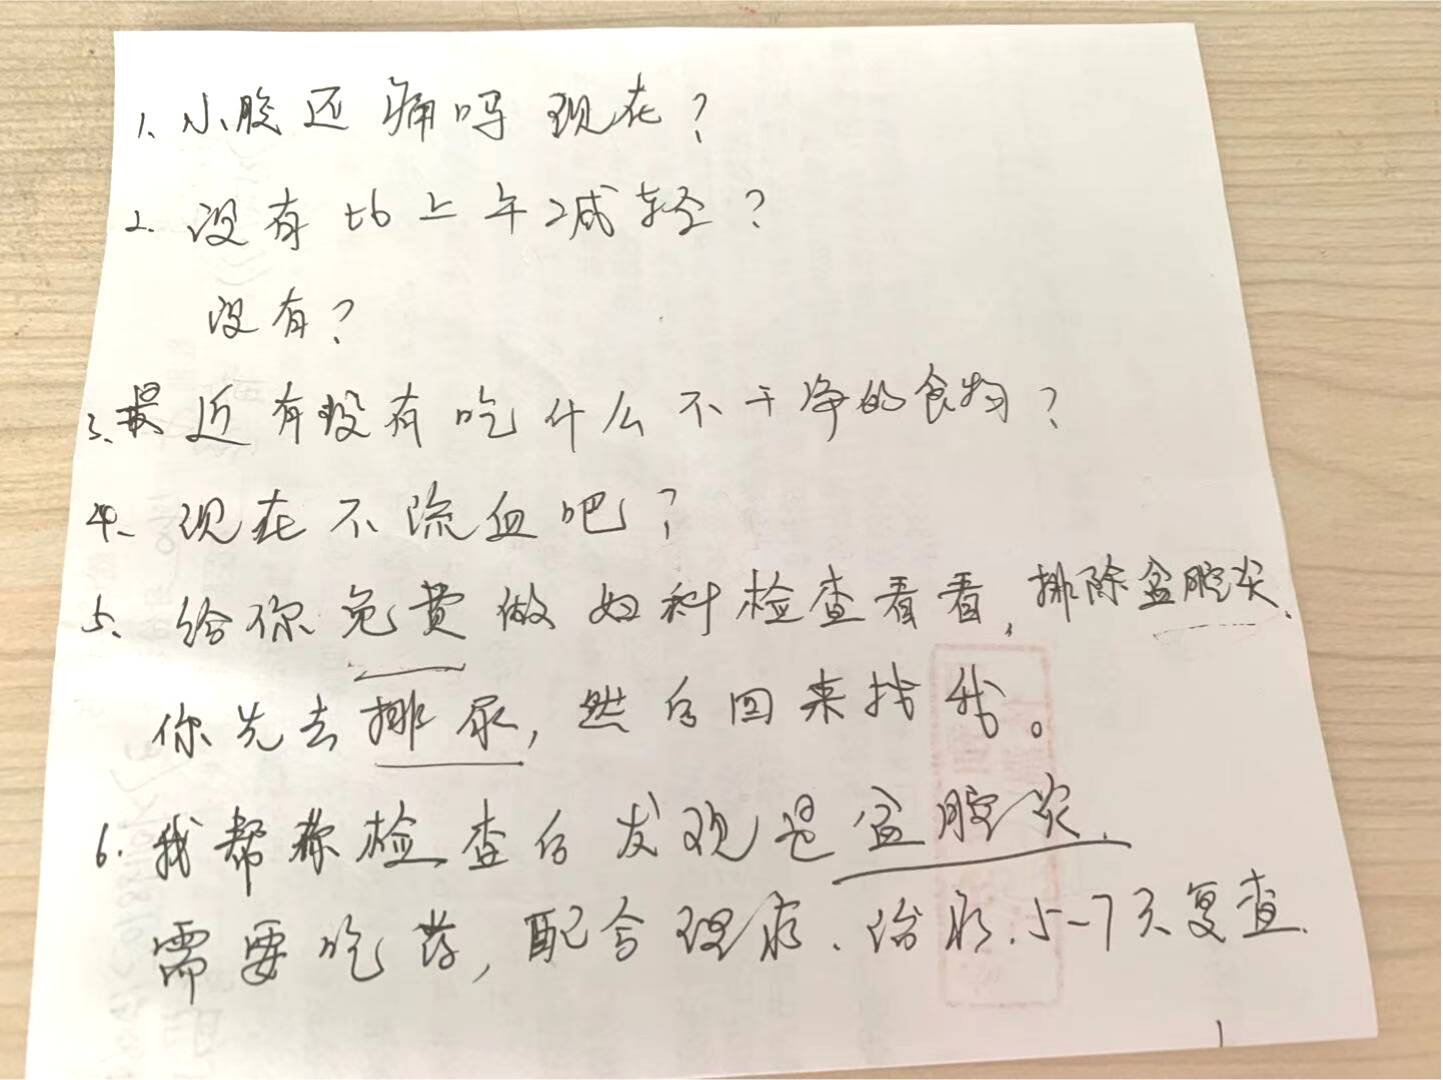 1、小腹还痛吗 现在？
2. 没有比上午减轻？
没有？
3、最近有没有吃什么不干净的食物？
4、现在不流血吧？
5、给你免费做妇科检查看看，排除盆腔炎.
你先去排尿，然后回来找我。
6. 我帮你检查后发现是盆腔炎.
需要吃药，配合理疗.治疗.5-7天复查.